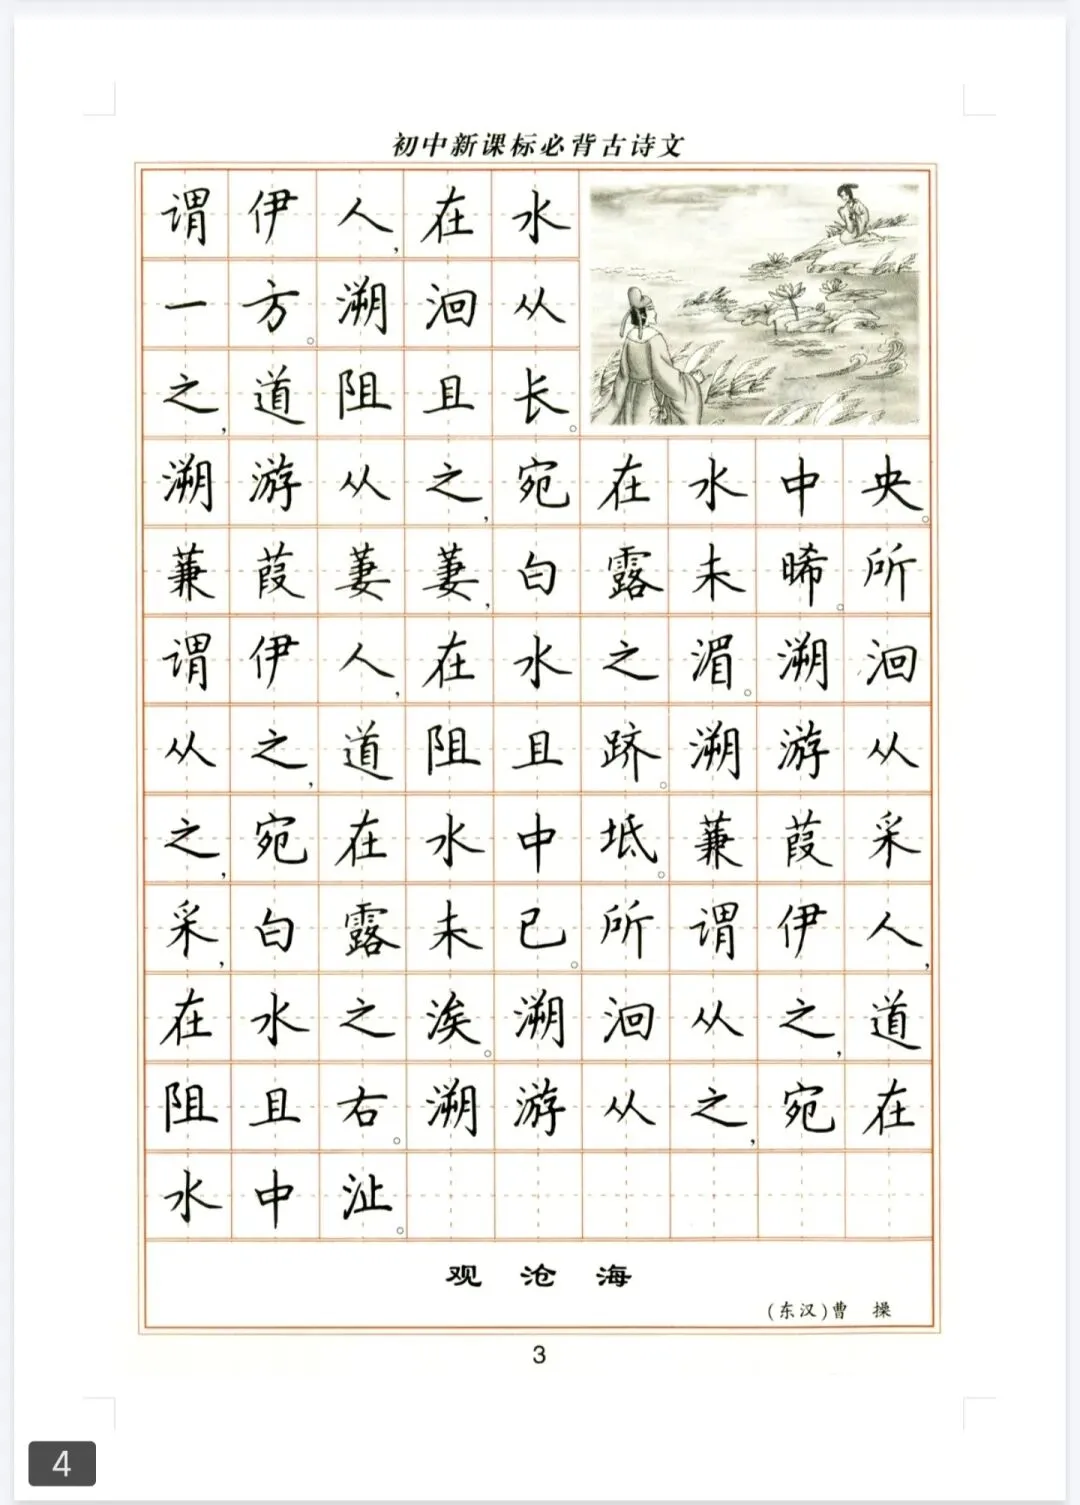 初中新课标必背古诗文
谓伊人,在水
一方。溯洄从
之,道阻且长。
溯游从之,宛在水中央。
蒹葭萋萋,白露未晞。所
谓伊人,在水之湄。溯洄
从之,道阻且跻。溯游从
之,宛在水中坻。蒹葭采
采,白露未已。所谓伊人,
在水之涘。溯洄从之,道
阻且右。溯游从之,宛在
水中沚。
观沧海
(东汉)曹 操
3
4